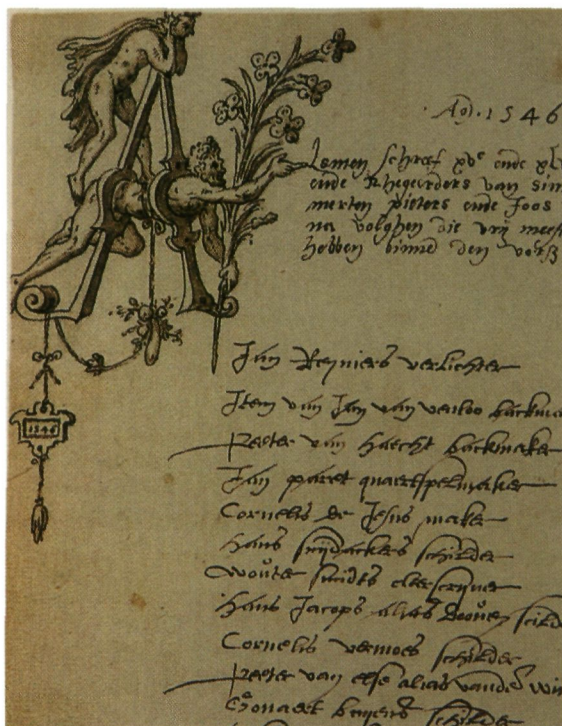 · Aọ · 1546
Lemen schreef xvᶜ ende xl
ende Rhegeerders van Sin
merten pieters ende Joos
na volghen die vrij mees
hebben binnē den vorß
1546
Jan Reyniers verlichter
Item van Jan van venloo backma
Peeter van haecht backmaker
Jan paret quaertspelmaker
Cornelis de Jesus maker
Hans schilder
Wouter smidts clerscriver
Hans Jacops alias
Cornelis vermoes schilder
Peeter van else alias vander
beyens schilder